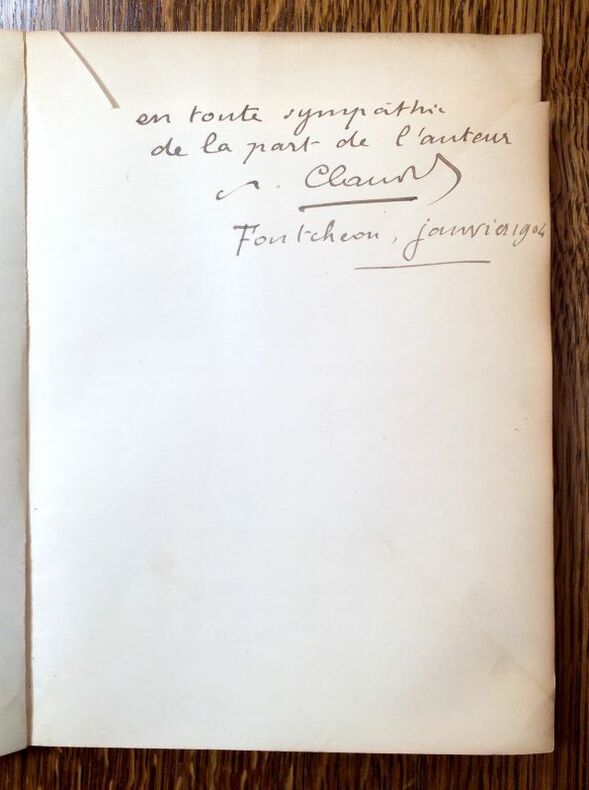 en toute sympathie
de la part de l'auteur
P. Claudel
Fou tcheou, janvier 1904